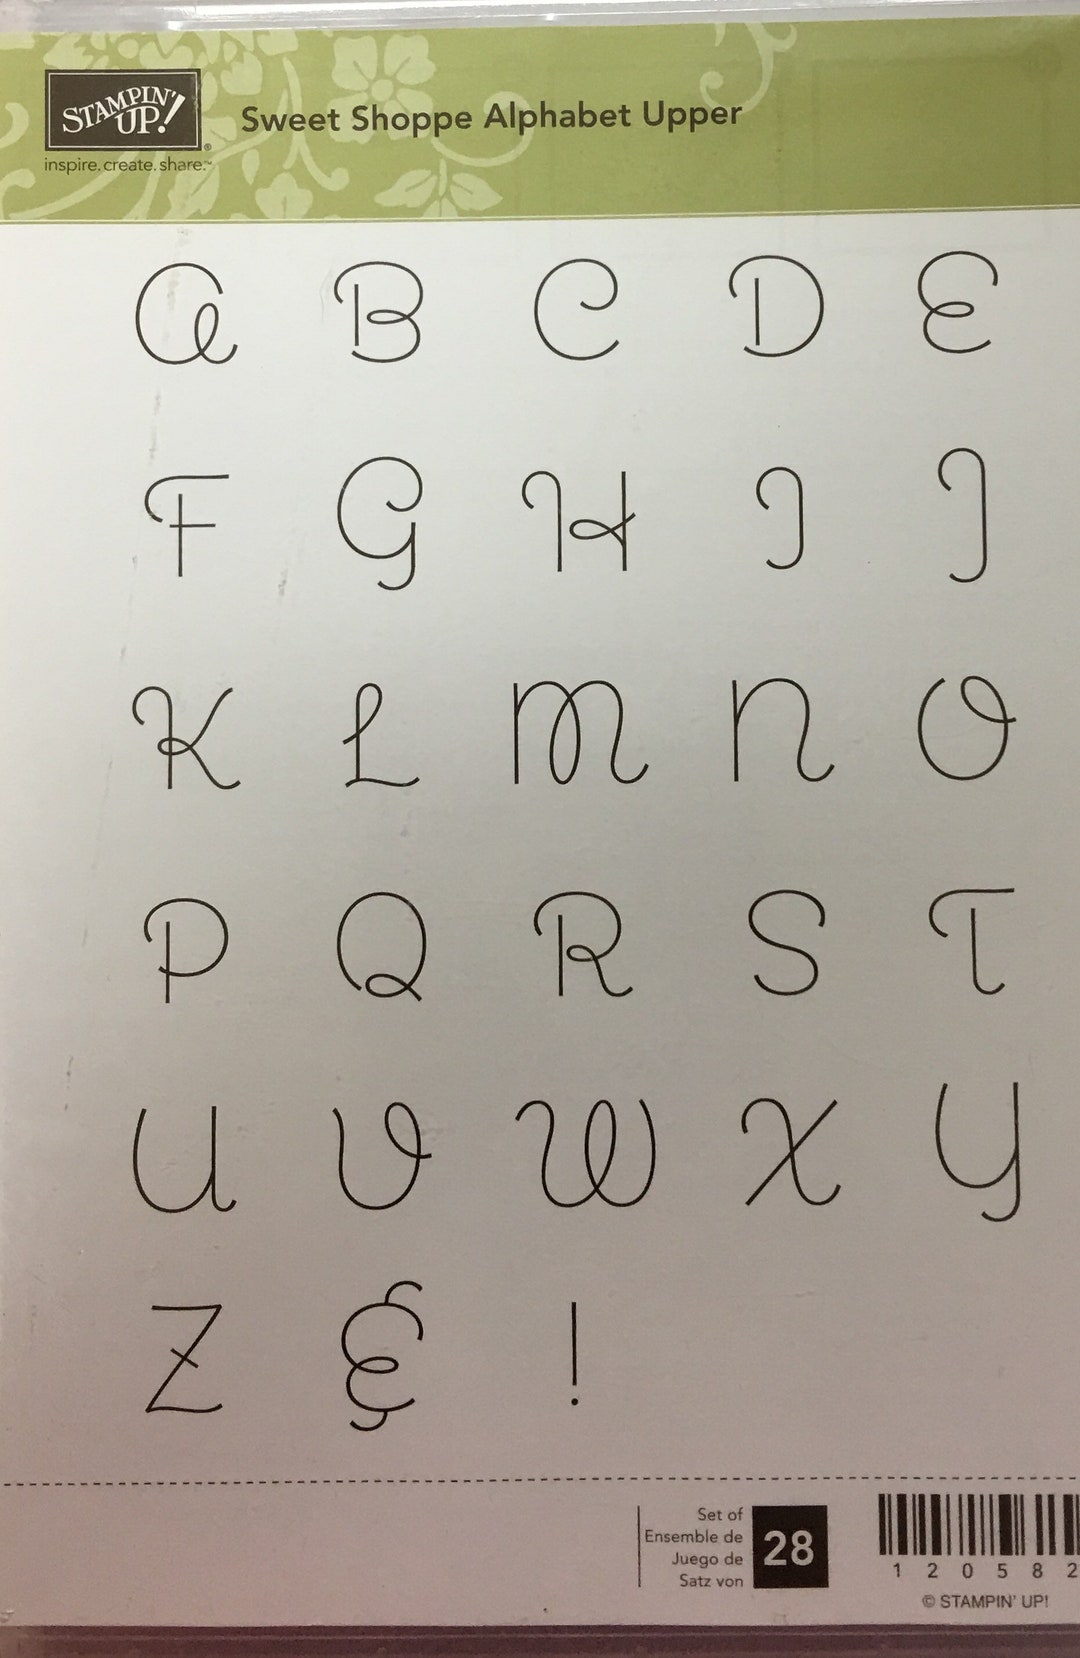 STAMPIN' UP!®
inspire.create.share.™
Sweet Shoppe Alphabet Upper
A B C D E
F G H I J
K L M N O
P Q R S T
U V W X Y
Z & !
Set of
Ensemble de
Juego de
Satz von
28
1 2 0 5 8 2
© STAMPIN' UP!